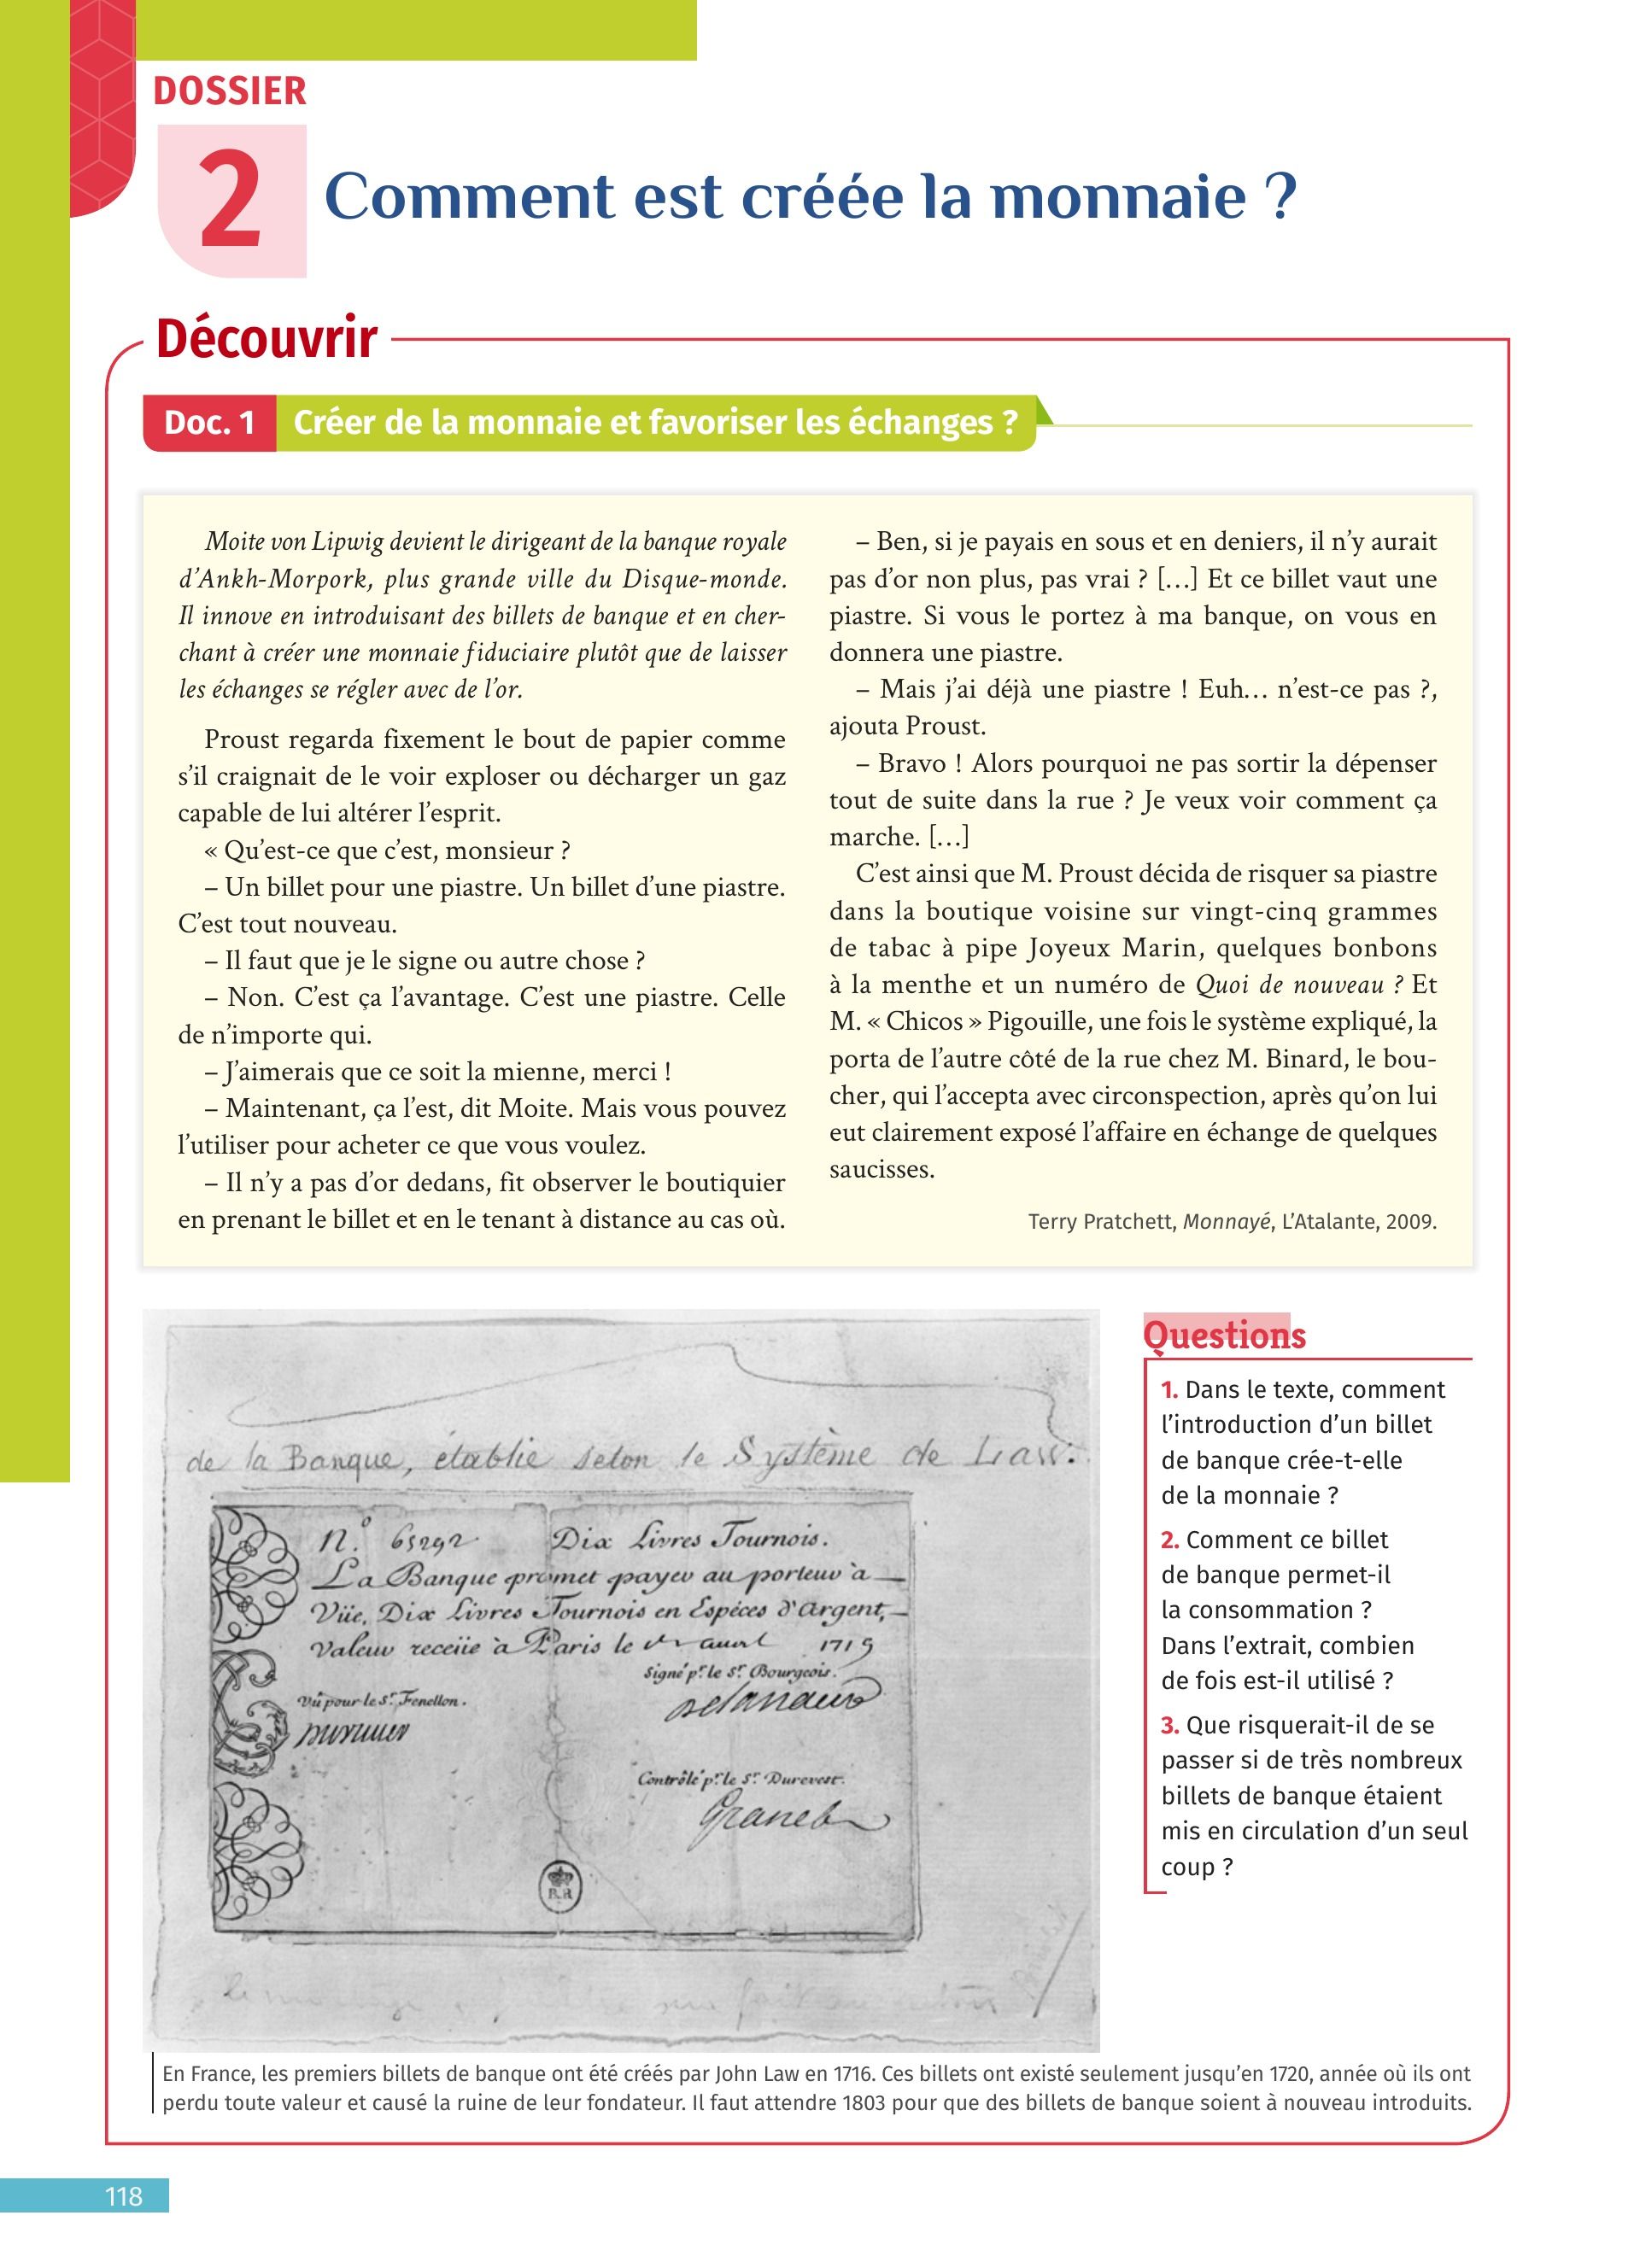 DOSSIER
2
Comment est créée la monnaie ?
Découvrir
Doc. 1
Créer de la monnaie et favoriser les échanges ?
Moite von Lipwig devient le dirigeant de la banque royale
d’Ankh-Morpork, plus grande ville du Disque-monde.
Il innove en introduisant des billets de banque et en cher-
chant à créer une monnaie fiduciaire plutôt que de laisser
les échanges se régler avec de l’or.
Proust regarda fixement le bout de papier comme
s’il craignait de le voir exploser ou décharger un gaz
capable de lui altérer l’esprit.
« Qu’est-ce que c’est, monsieur ?
– Un billet pour une piastre. Un billet d’une piastre.
C’est tout nouveau.
– Il faut que je le signe ou autre chose ?
– Non. C’est ça l’avantage. C’est une piastre. Celle
de n’importe qui.
– J’aimerais que ce soit la mienne, merci !
– Maintenant, ça l’est, dit Moite. Mais vous pouvez
l’utiliser pour acheter ce que vous voulez.
– Il n’y a pas d’or dedans, fit observer le boutiquier
en prenant le billet et en le tenant à distance au cas où.
– Ben, si je payais en sous et en deniers, il n’y aurait
pas d’or non plus, pas vrai ? […] Et ce billet vaut une
piastre. Si vous le portez à ma banque, on vous en
donnera une piastre.
– Mais j’ai déjà une piastre ! Euh… n’est-ce pas ?,
ajouta Proust.
– Bravo ! Alors pourquoi ne pas sortir la dépenser
tout de suite dans la rue ? Je veux voir comment ça
marche. […]
C’est ainsi que M. Proust décida de risquer sa piastre
dans la boutique voisine sur vingt-cinq grammes
de tabac à pipe Joyeux Marin, quelques bonbons
à la menthe et un numéro de Quoi de nouveau ? Et
M. « Chicos » Pigouille, une fois le système expliqué, la
porta de l’autre côté de la rue chez M. Binard, le bou-
cher, qui l’accepta avec circonspection, après qu’on lui
eut clairement exposé l’affaire en échange de quelques
saucisses.
Terry Pratchett, Monnayé, L’Atalante, 2009.
de la Banque, établie selon le Système de Law.
N.º 65292 Dix Livres Tournois.
La Banque promet payer au porteur à
Vüe, Dix Livres Tournois en Espéces d'Argent,
Valeur reçeüe à Paris le avril 1719
Signé pr. le Sr. Bourgeois.
Vû pour le Sr. Fenellon.
Contrôlé pr. le Sr. Durevest.
Granet
B.R
Questions
1. Dans le texte, comment
l’introduction d’un billet
de banque crée-t-elle
de la monnaie ?
2. Comment ce billet
de banque permet-il
la consommation ?
Dans l’extrait, combien
de fois est-il utilisé ?
3. Que risquerait-il de se
passer si de très nombreux
billets de banque étaient
mis en circulation d’un seul
coup ?
En France, les premiers billets de banque ont été créés par John Law en 1716. Ces billets ont existé seulement jusqu’en 1720, année où ils ont
perdu toute valeur et causé la ruine de leur fondateur. Il faut attendre 1803 pour que des billets de banque soient à nouveau introduits.
118